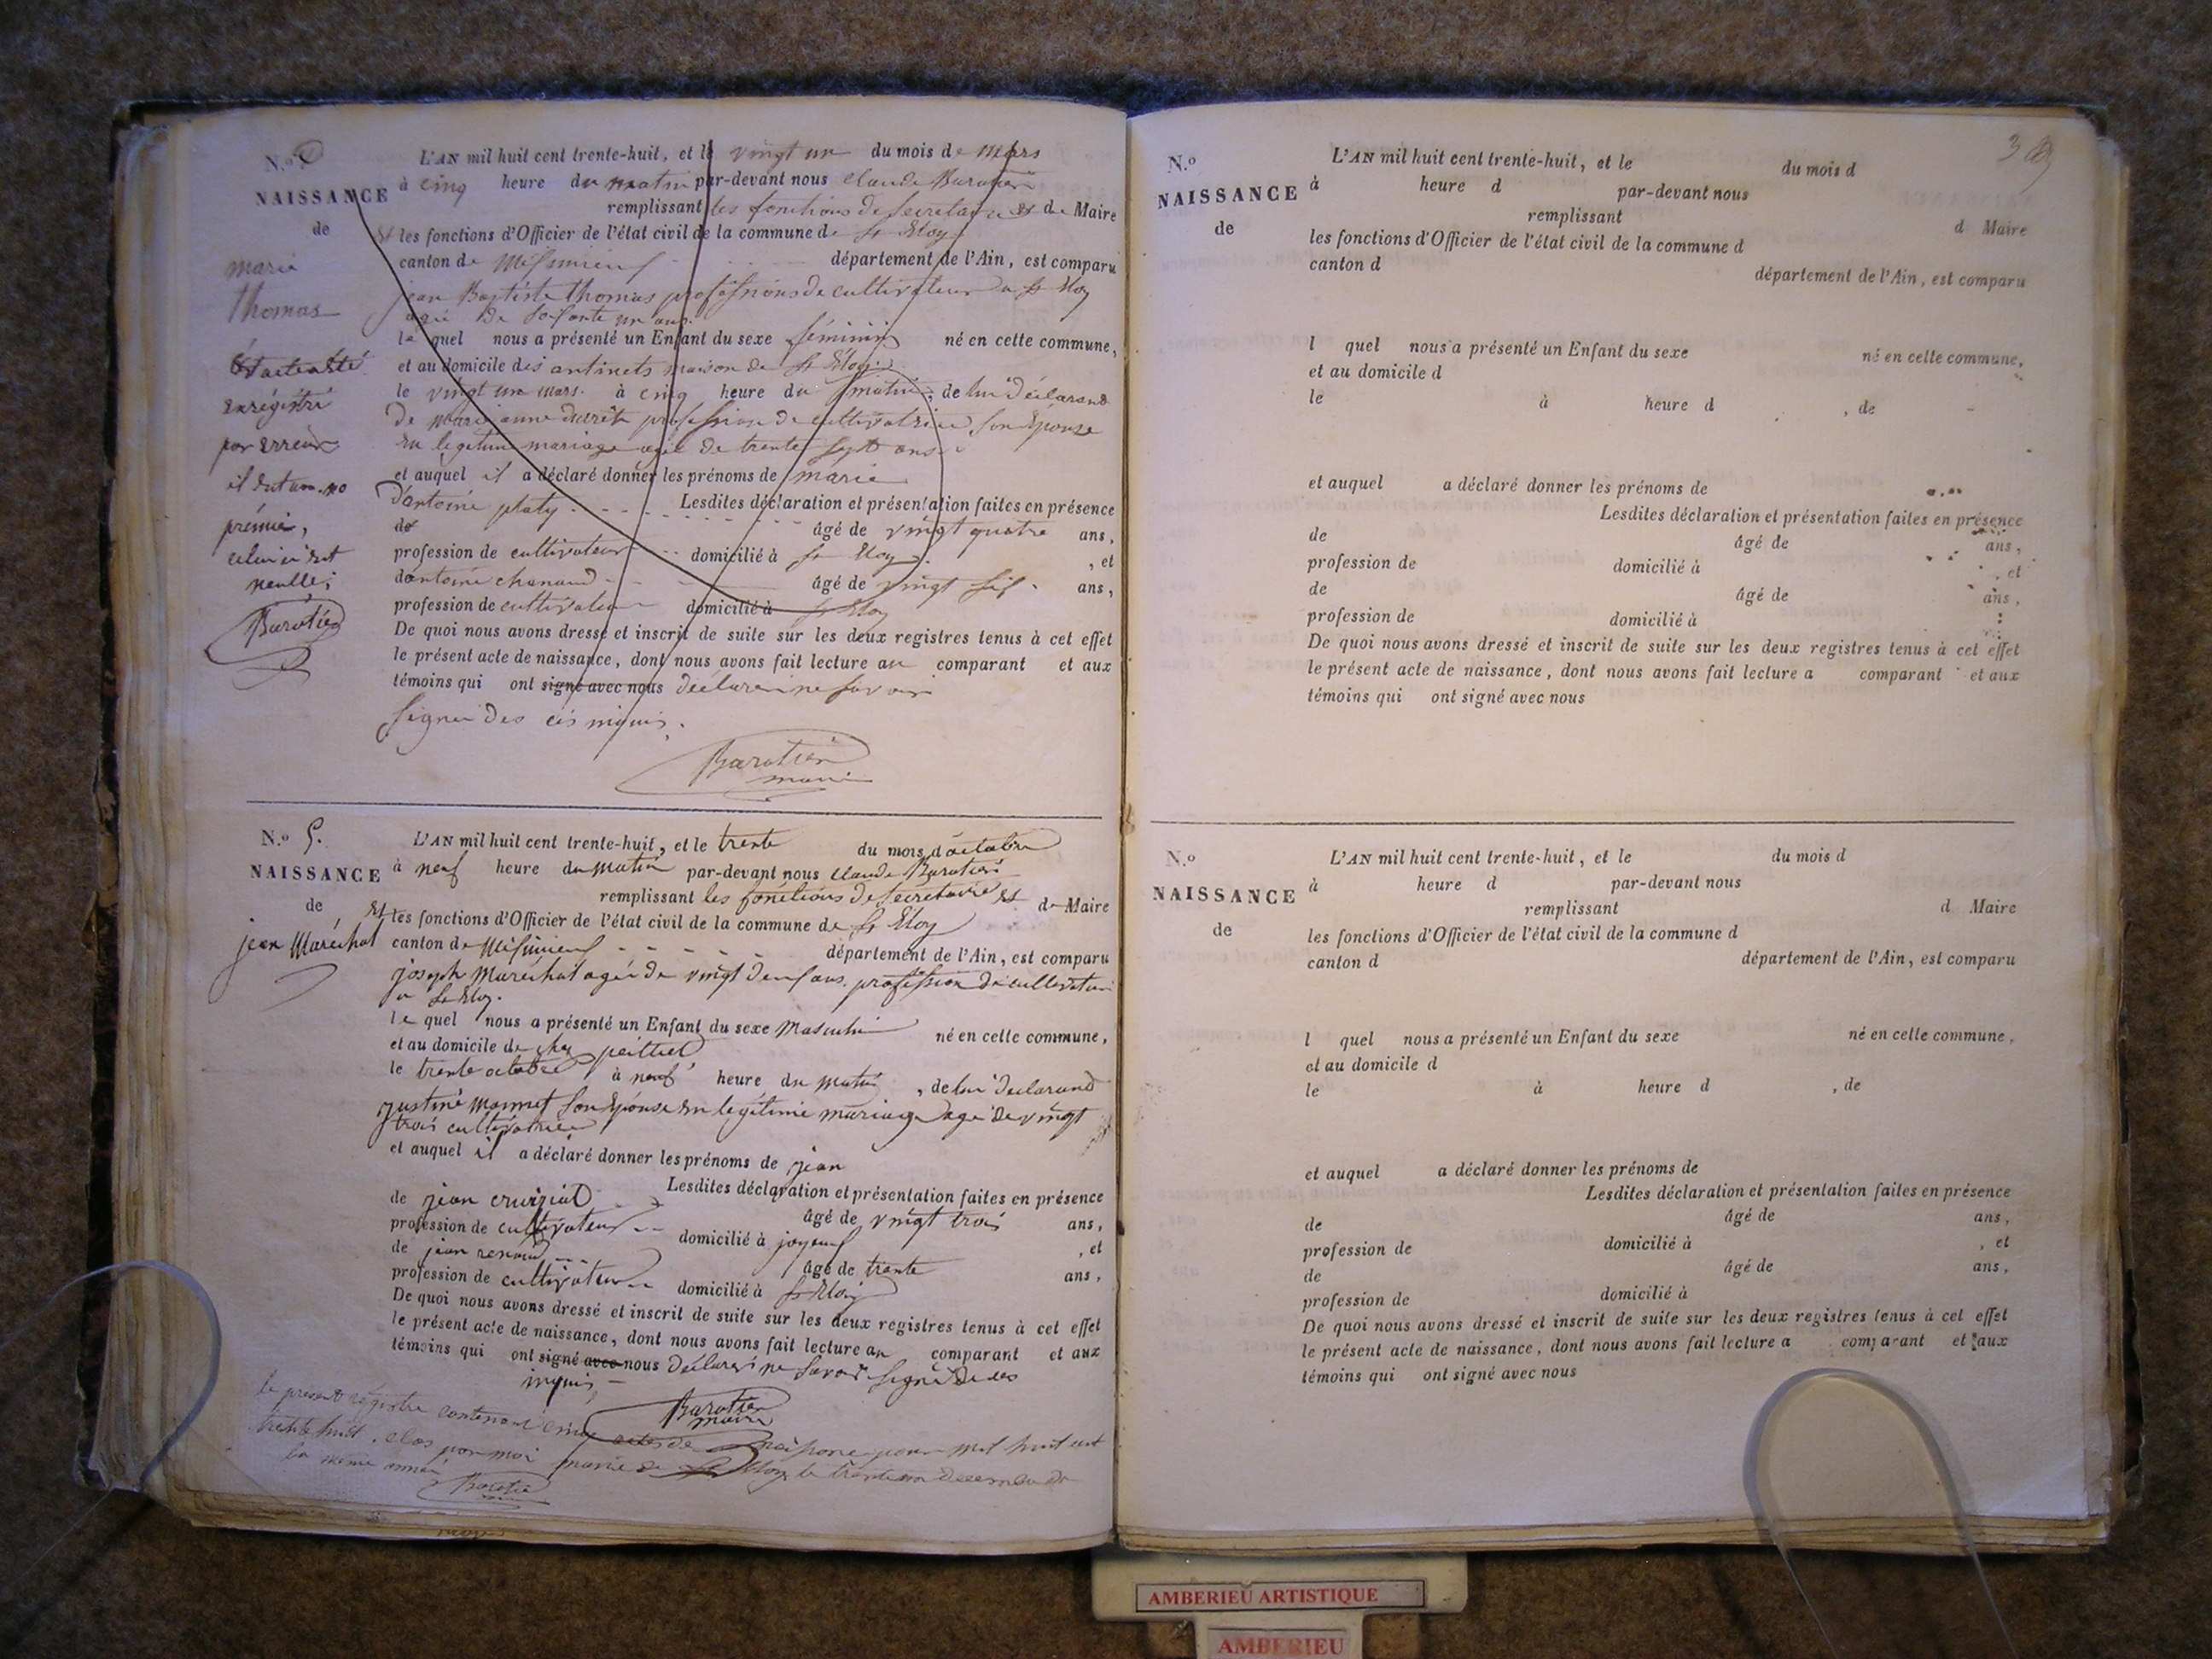 N.o
NAISSANCE
de
marie
thomas
enrégistré
par erreur
il est au no
premier,
celui ci est
Barotier
L'AN mil huit cent trente-huit, et le vingt un du mois de Mars
à cinq heure du matin par-devant nous claude Barotier
remplissant les fonctions de secretaire et de Maire
et les fonctions d'Officier de l'état civil de la commune de St Eloy
canton de Meximieux département de l'Ain, est comparu
jean Baptiste thomas profession de cultivateur a St Eloy
agé de soisante un ans.
le quel nous a présenté un Enfant du sexe féminin né en cette commune,
et au domicile des antinets maison de St Eloy
le vingt un mars. à cinq heure du matin, de lui déclarand
De marie anne profession de cultivatrice, son épouse
en legitime mariage agée de trente sept ans
et auquel il a déclaré donner les prénoms de marie
Lesdites déclaration et présentation faites en présence
d'antoine platy
de âgé de vingt quatre ans,
profession de cultivateur domicilié à St Eloy , et
d'antoine chanaud âgé de vingt six ans,
profession de cultivateur domicilié à St Eloy
De quoi nous avons dressé et inscrit de suite sur les deux registres tenus à cet effet
le présent acte de naissance, dont nous avons fait lecture au comparant et aux
témoins qui ont signé avec nous déclaré ne savoir
signer des ces
Barotier
maire
N.o 5.
NAISSANCE
de
jean Maréchal
L'AN mil huit cent trente-huit, et le trente du mois d'octobre
à neuf heure du matin par-devant nous claude Barotier
remplissant les fonctions de secretaire et de Maire
et les fonctions d'Officier de l'état civil de la commune de St Eloy
canton de Meximieux département de l'Ain, est comparu
joseph Marechal agée de vingt ans. profession de cultivateur
a St Eloy.
le quel nous a présenté un Enfant du sexe Masculin né en cette commune,
et au domicile de chez
le trente octobre à neuf heure du matin , de lui declarand
justine monnet son épouse en legitime mariage age de vingt
trois cultivatrice
et auquel il a déclaré donner les prénoms de jean
Lesdites déclaration et présentation faites en présence
de jean âgé de vingt trois ans,
profession de cultivateur domicilié à joyeux , et
de jean renaud âgé de trente ans,
profession de cultivateur domicilié à St Eloy
De quoi nous avons dressé et inscrit de suite sur les deux registres tenus à cet effet
le présent acte de naissance, dont nous avons fait lecture au comparant et aux
témoins qui ont signé avec nous déclaré ne savoir signé de ces
Barotier
maire
le présent régistre contenant cinq actes de naissance pour mil huit cent
trente huit. clos par moi maire de St Eloy le trente un decembre de
la même année
Barotier
N.o
NAISSANCE
de
L'AN mil huit cent trente-huit, et le du mois d
à heure d par-devant nous
remplissant d Maire
les fonctions d'Officier de l'état civil de la commune d
canton d département de l'Ain, est comparu
l quel nous a présenté un Enfant du sexe né en cette commune,
et au domicile d
le à heure d , de
et auquel a déclaré donner les prénoms de
Lesdites déclaration et présentation faites en présence
de âgé de ans,
profession de domicilié à , et
de âgé de ans,
profession de domicilié à
De quoi nous avons dressé et inscrit de suite sur les deux registres tenus à cet effet
le présent acte de naissance, dont nous avons fait lecture a comparant et aux
témoins qui ont signé avec nous
N.o
NAISSANCE
de
L'AN mil huit cent trente-huit, et le du mois d
à heure d par-devant nous
remplissant d Maire
les fonctions d'Officier de l'état civil de la commune d
canton d département de l'Ain, est comparu
l quel nous a présenté un Enfant du sexe né en cette commune,
et au domicile d
le à heure d , de
et auquel a déclaré donner les prénoms de
Lesdites déclaration et présentation faites en présence
de âgé de ans,
profession de domicilié à , et
de âgé de ans,
profession de domicilié à
De quoi nous avons dressé et inscrit de suite sur les deux registres tenus à cet effet
le présent acte de naissance, dont nous avons fait lecture a comparant et aux
témoins qui ont signé avec nous
AMBERIEU ARTISTIQUE
AMBERIEU